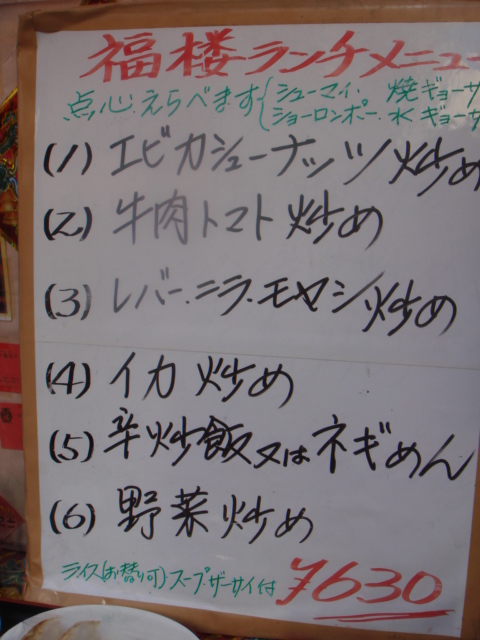 福楼ランチメニュー
点心えらべます{シューマイ. 焼ギョーザ
ショーロンポー. 水ギョーザ
(1) エビカシューナッツ炒め
(2) 牛肉トマト炒め
(3) レバー.ニラ.モヤシ炒め
(4) イカ炒め
(5) 辛炒飯又はネギめん
(6) 野菜炒め
ライス(お替り可)スープザーサイ付 ¥630